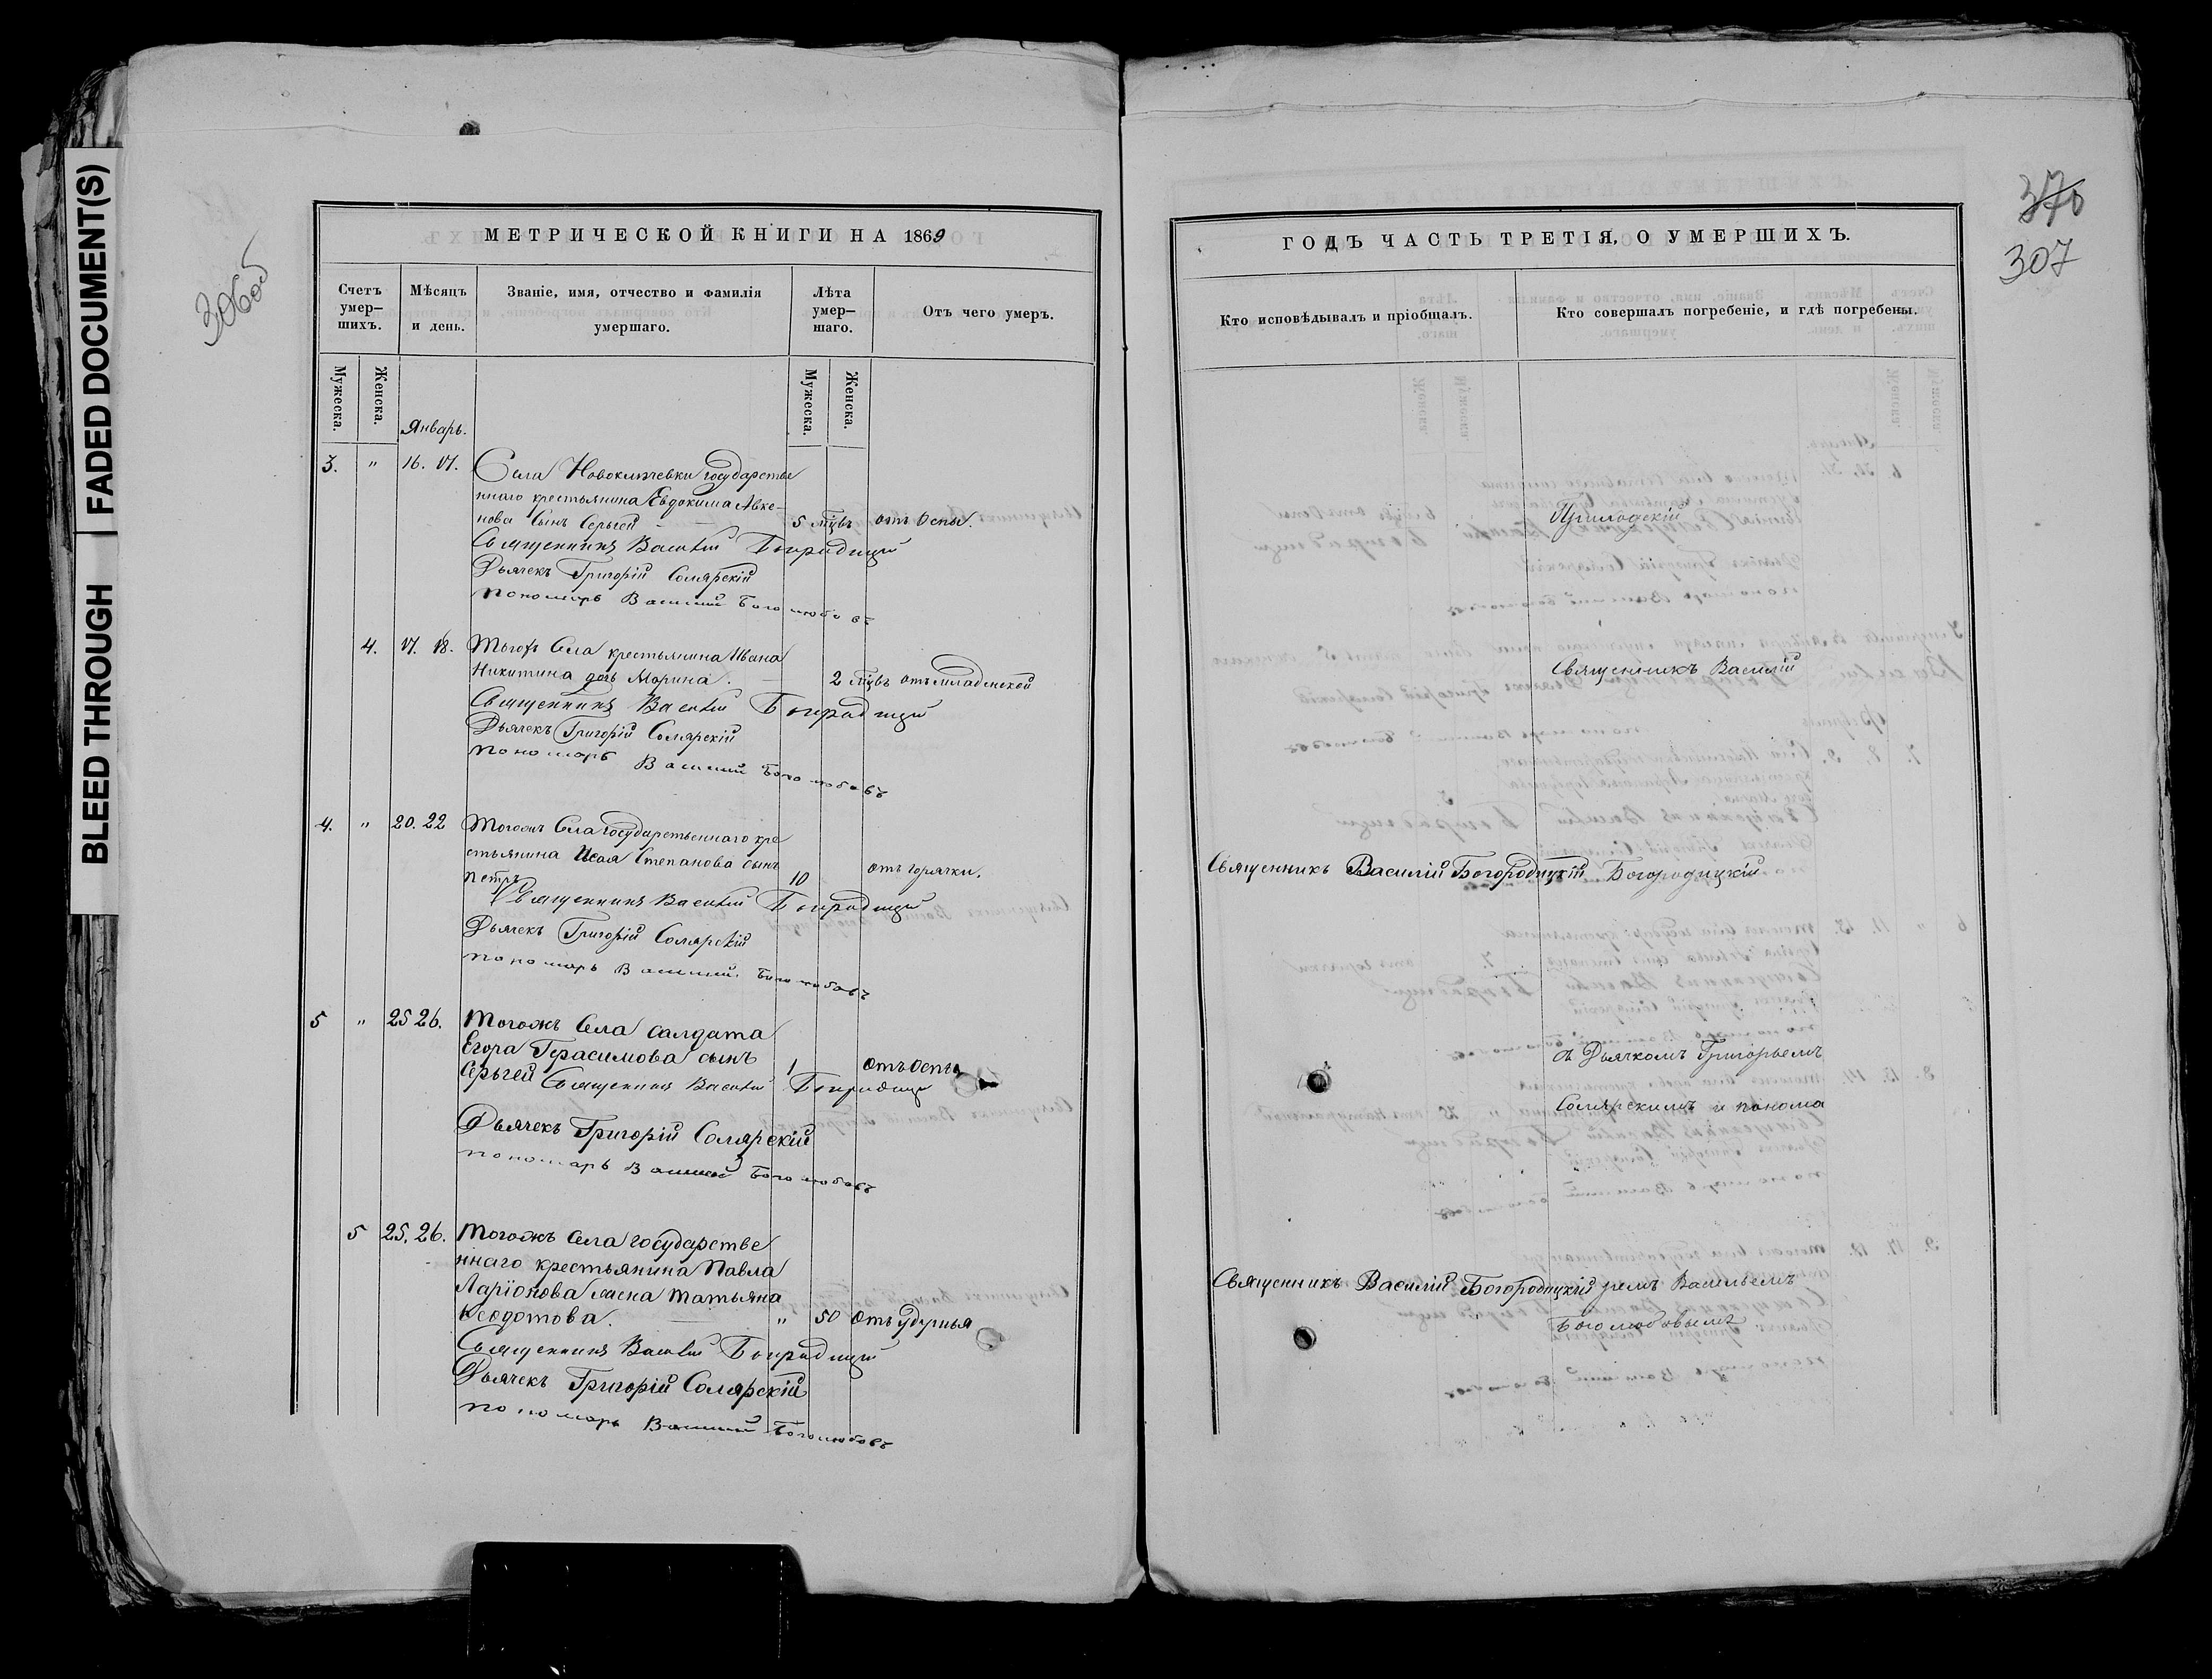 BLEED THROUGH
FADED DOCUMENT(S)
306об
МЕТРИЧЕСКОЙ КНИГИ НА 1869
Счетъ умер-шихъ.
Мѣсяцъ и день.
Званіе, имя, отчество и фамилія умершаго.
Лѣта умер-шаго.
Отъ чего умеръ.
Мужеска.
Женска.
Январь.
Мужеска.
Женска.
3. " 16. 17. Села Новоключевки государстве
ннаго крестьянина Евдокима Авке-
нова Сынъ Сергей 5 мцвъ отъ Оспы.
Священникъ Василій Богородицкій
Дьячекъ Григорій Солярскій
пономарь Василий Боголюбовъ
4. 17. 18. Тогожъ Села крестьянина Ивана
Никитина дочь Марина. 2 мцвъ отъ младенской
Священникъ Василій Богородицкій
Дьячекъ Григорій Солярскій
пономарь Василий Боголюбовъ
4. " 20. 22 Тогожъ Села государственнаго кре
стьянина Исая Степанова сынъ
Петръ 10 отъ горячки.
Священникъ Василій Богородицкій
Дьячекъ Григорій Солярскій
пономарь Василий Боголюбовъ
5 " 25 26. Тогожъ Села салдата
Егора Герасимова сынъ
Сергей 1 отъ оспы
Священникъ Василій Богородицкій
Дьячекъ Григорій Солярскій
пономарь Василий Боголюбовъ
5 25. 26. Тогожъ Села государстве
ннаго крестьянина Павла
Ларіонова жена Татьяна
Ѳеодотова. " 50 отъ удушья
Священникъ Василій Богородицкій
Дьячекъ Григорій Солярскій
пономарь Василий Боголюбовъ
370
307
ГОДЪ ЧАСТЬ ТРЕТІЯ, О УМЕРШИХЪ.
Кто исповѣдывалъ и пріобщалъ.
Кто совершалъ погребеніе, и гдѣ погребены.
Священникъ Василій
Священникъ Василій Богородицкій Богородицкій
съ Дьячкомъ Григорьемъ
Солярскимъ и понома
Священникъ Василій Богородицкій ремъ Васильемъ
Боголюбовымъ